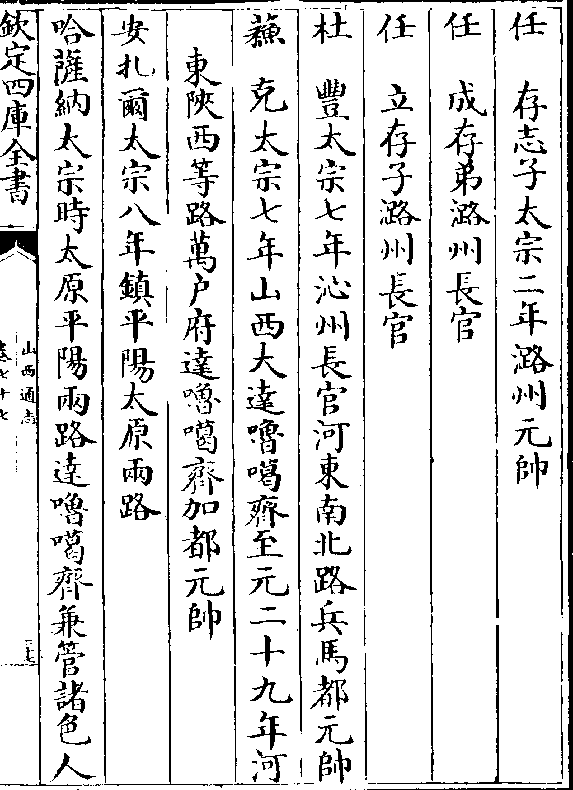 任　存志子太宗二年潞州元帥
任　成存弟潞州長官
任　立存子潞州長官
杜　豐太宗七年沁州長官河東南北路兵馬都元帥
蘓　克太宗七年山西大達嚕噶齊至元二十九年河
東陜西等路萬户府達嚕噶齊加都元帥
安扎爾太宗八年鎮平陽太原兩路
哈薩納太宗時太原平陽兩路達嚕噶齊兼管諸色人
欽定四庫全書
山西通志
卷七十七